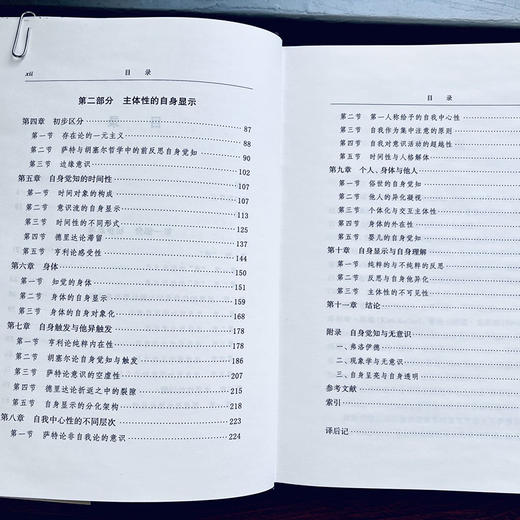 xii 目 录
第二部分 主体性的自身显示
第四章 初步区分 87
第一节 存在论的一元主义 87
第二节 萨特与胡塞尔哲学中的前反思自身觉知 90
第三节 边缘意识 102
第五章 自身觉知的时间性 107
第一节 时间对象的构成 107
第二节 意识流的自身显示 113
第三节 时间性的不同形式 125
第四节 德里达论滞留 137
第五节 亨利论感受性 144
第六章 身体 150
第一节 知觉的身体 151
第二节 身体的自身显示 159
第三节 身体的自身对象化 168
第七章 自身触发与他异触发 178
第一节 亨利论纯粹内在性 178
第二节 胡塞尔论自身觉知与触发 186
第三节 萨特论意识的空虚性 207
第四节 德里达论折返之中的裂隙 215
第五节 自身显示的分化架构 218
第八章 自我中心性的不同层次 223
第一节 萨特论非自我论的意识 224
目 录
第二节 第一人称给予的自我中心性
第三节 自我作为集中注意的原则
第四节 自我对意识活动的超越性
第五节 时间性与人格解体
第九章 个人、身体与他人
第一节 俗世的自身觉知
第二节 他人的异化凝视
第三节 个体化与交互主体性
第四节 身体的外在性
第五节 婴儿的自身觉知
第十章 自身显示与自身理解
第一节 纯粹的与不纯粹的反思
第二节 反思与自身他异化
第三节 主体性的不可见性
第十一章 结论
附录 自身觉知与无意识
一、弗洛伊德
二、现象学与无意识
三、自身呈亮与自身透明
参考文献
索引
译后记